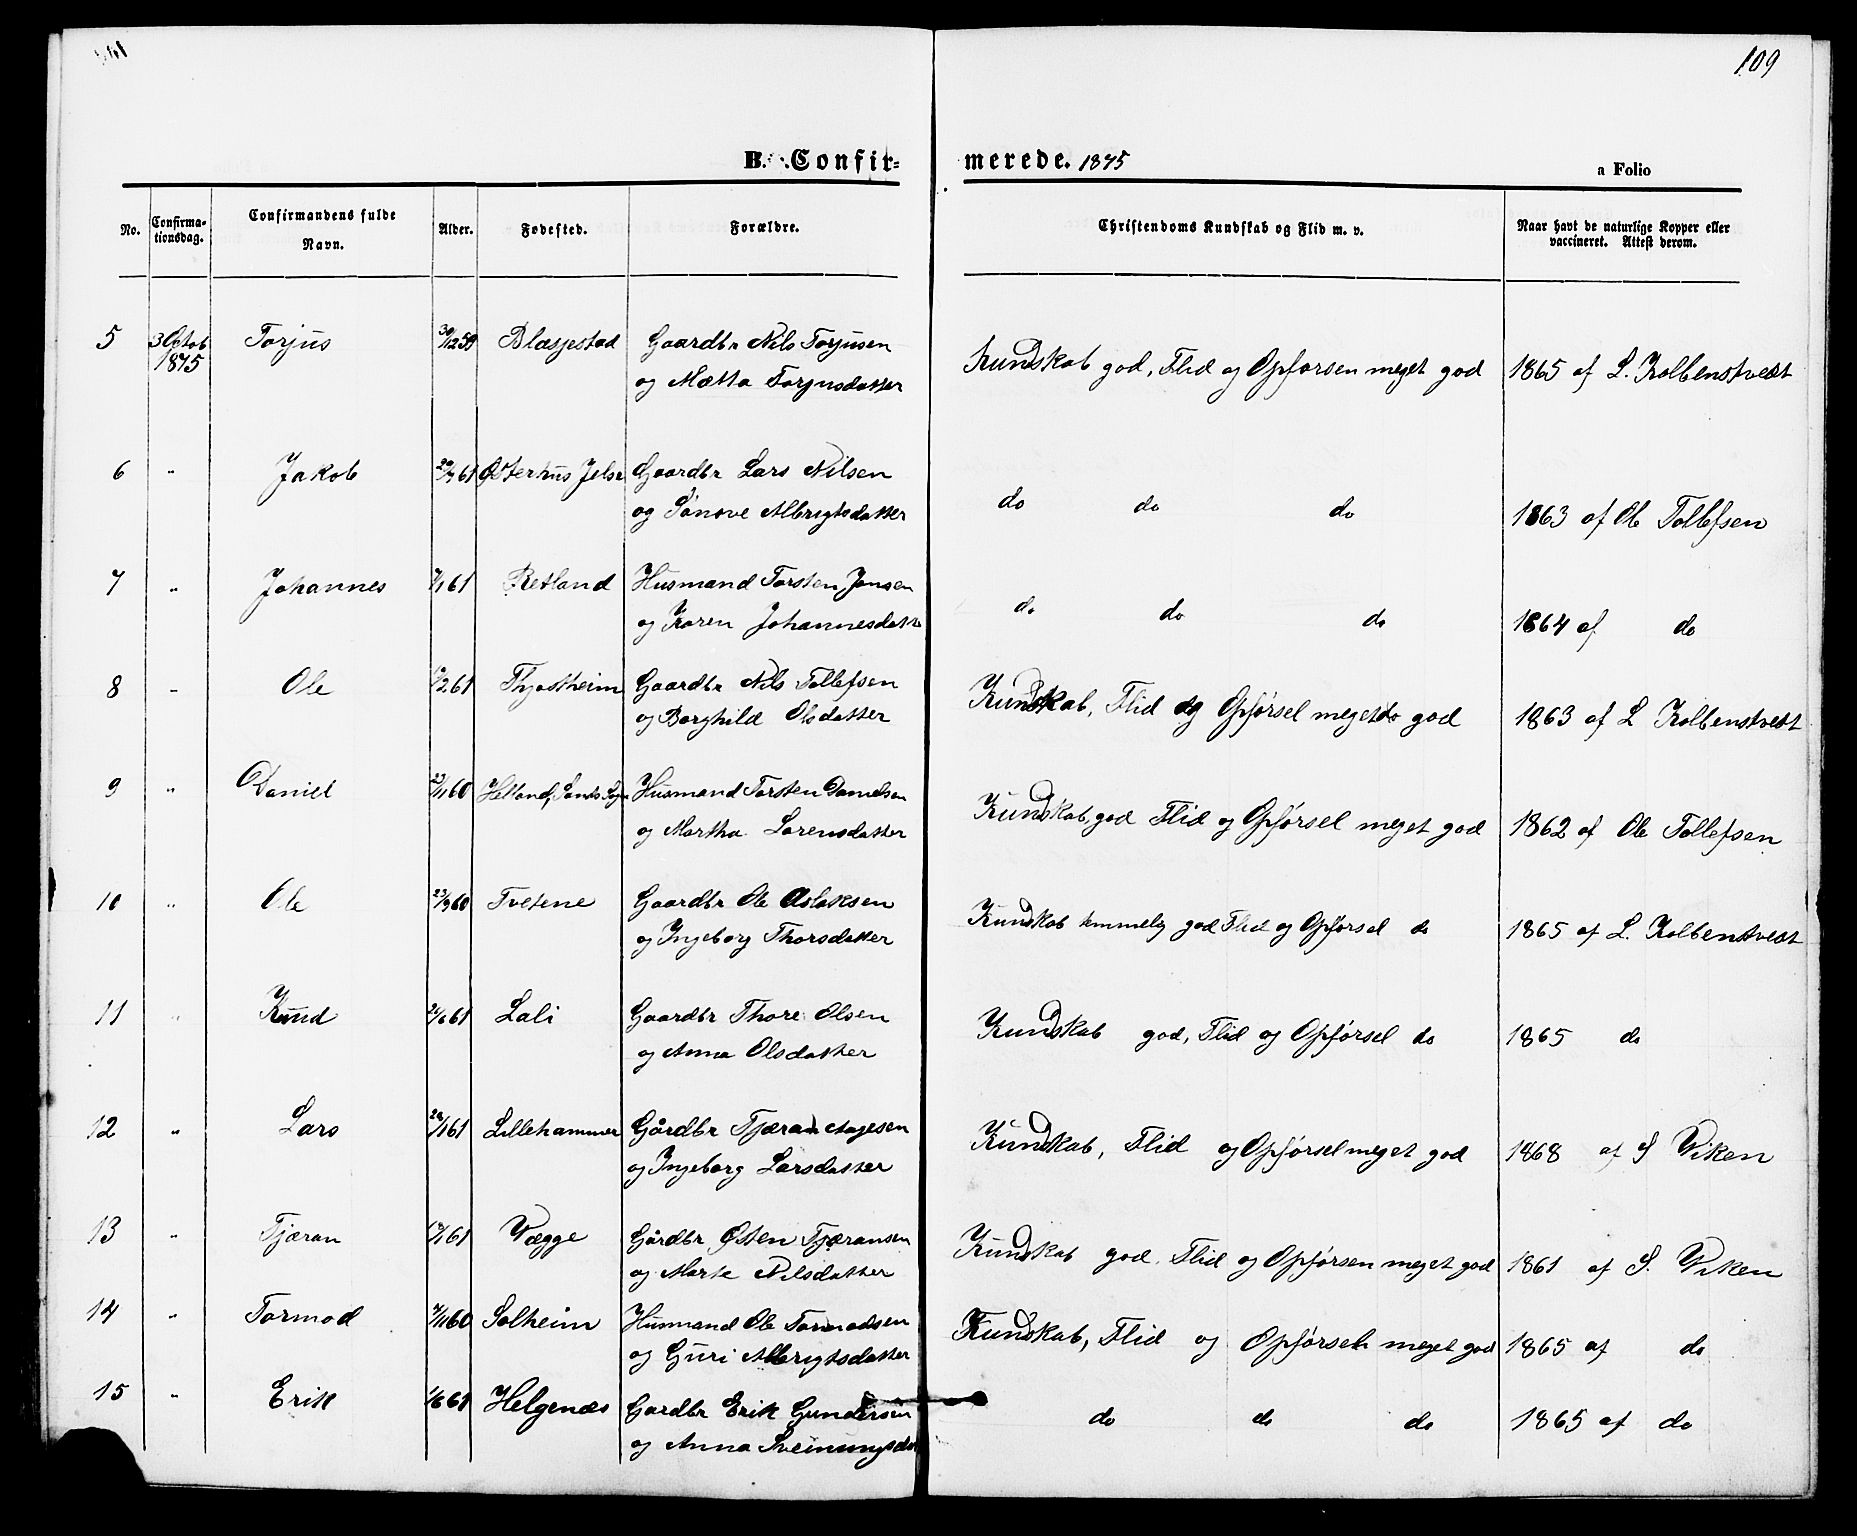 109
B. Confir-
merede. 1875
a Folio
No.
Confirma-
tionsdag.
Confirmandens fulde
Navn.
Alder.
Fødested.
Forældre.
Christendoms Kundskab og Flid m. v.
Naar havt de naturlige Kopper eller
vaccineret. Attest derom.
5 3 Octob Torjus 30/12 59 Blæsjestad Gaardbr Nils Torjusen
1875 og Mætta Torjusdatter
Kundskab god, Flid og Opførsen meget god 1865 af L. Kolbenstvedt
6 " Jakob Østerhus Jelse Gaardbr Lars Nilsen
og Sønove Albrigtsdatter
do do do 1863 af Ole Tollefsen
7 " Johannes 7/1 61 Retland Husmand Torsten Jonsen
og Karen Johannesdatt
do do do 1864 af do
8 " Ole Thjostheim Gaardbr Nils Tollefsen
og Borghild Olsdatter
Kundskab, Flid og Opførsel meget god 1863 af L Kolbenstvedt
9 " Daniel 23/11 60 Helland, Sands Sogn Husmand Torsten Danielsen
og Martha Lorensdatter
Kundskab, god Flid og Opførsel meget god 1862 af Ole Tollefsen
10 " Ole 23/9 60 Tvetene Gaardbr Ole Aslaksen
og Ingeborg Thorsdatter
Kundskab temmelig god Flid og Opførsel do 1865 af L. Kolbenstvedt
11 " Knud Lali Gaardbr Thore Olsen
og Anna Olsdatter
Kundskab god, Flid og Opførsel do 1865 do
12 " Lars Lillehammer Gårdbr Tjæran Aagesen
og Ingeborg Larsdatter
Kundskab, Flid og Opførsel meget god 1868 af S Viken
13 " Tjæran Vægge Gårdbr Østen Tjæransen
og Marte Nilsdatter
Kundskab god, Flid og Opførsen meget god 1861 af S. Viken
14 " Tormod Solheim Husmand Ole Tormodsen
og Guri Albrigtsdatter
Kundskab, Flid og Opførsel meget god 1865 af do
15 " Erik 1/6 61 Helgenæs Gardbr Erik Gundersen
og Anna Sveinungsdat
do do do 1865 af do